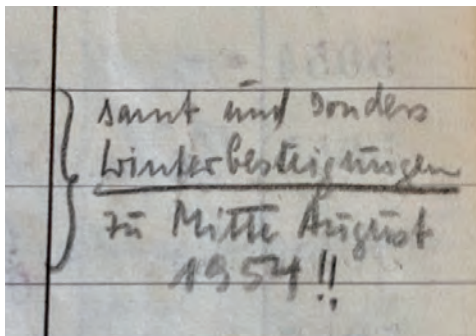 samt und sonders
Winterbesteigungen
zu Mitte August
1954!!